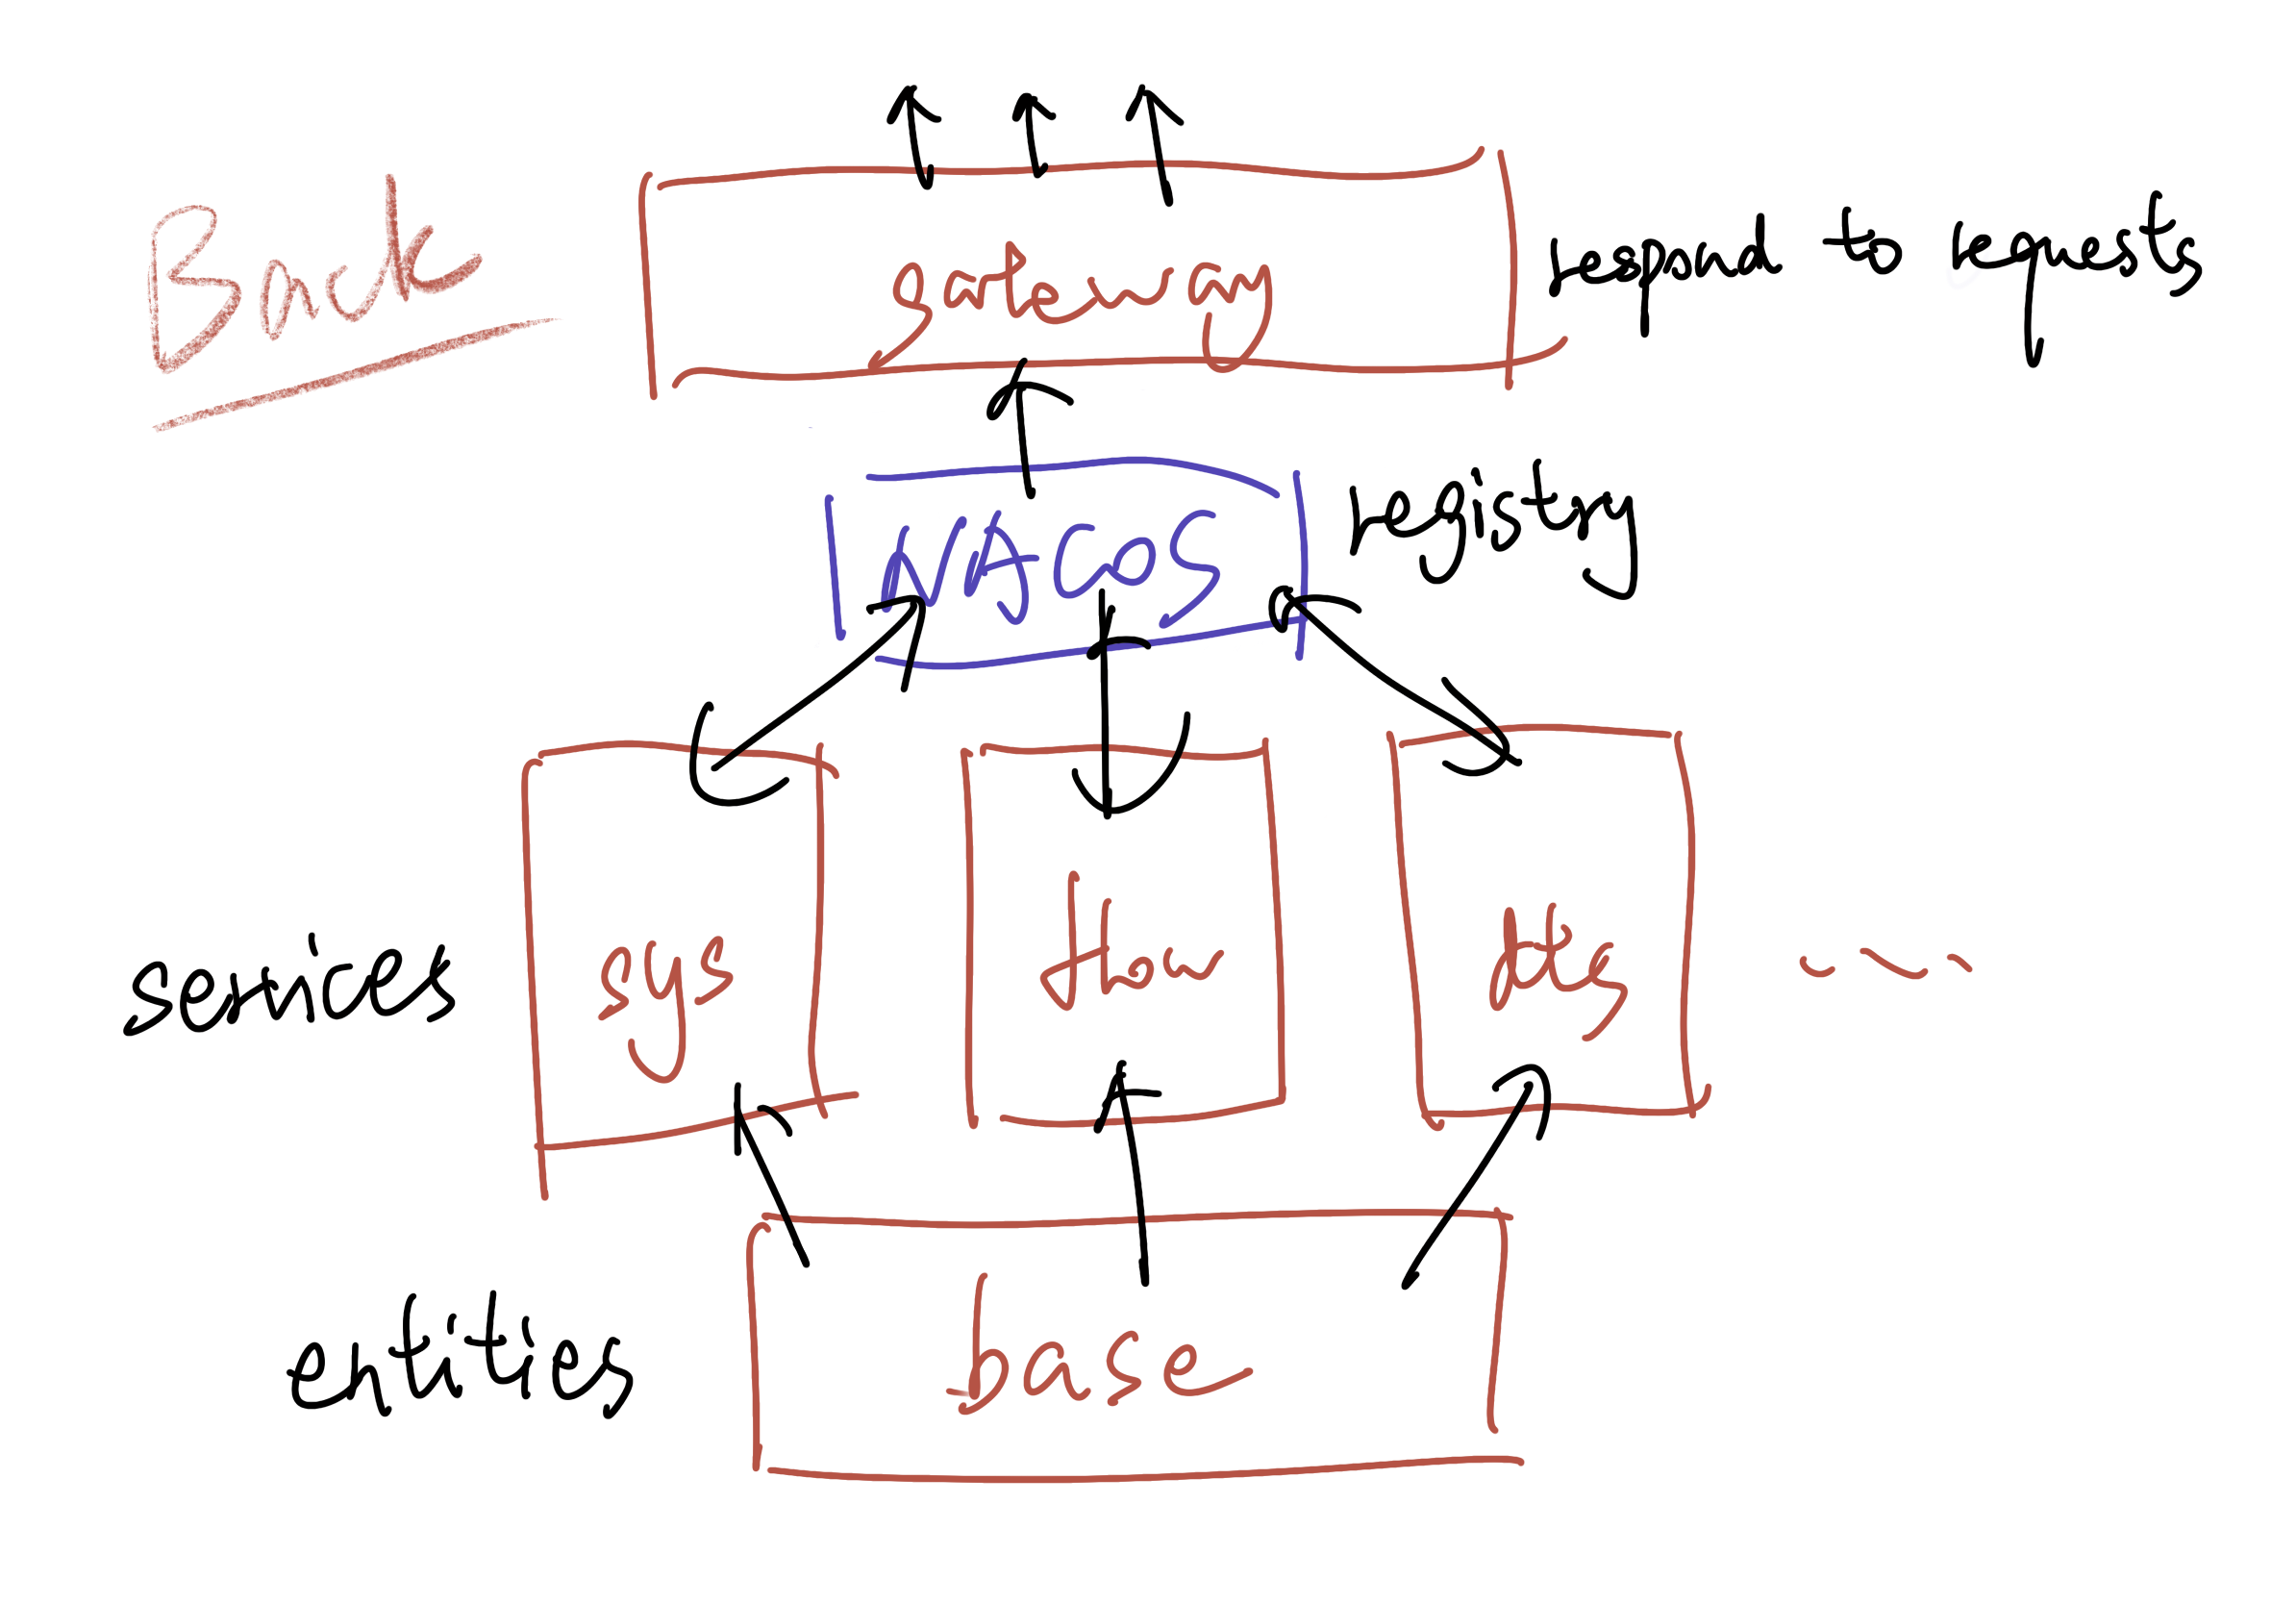 Back
gateway
respond to requests
NACOS
registry
services
sys
entities
base